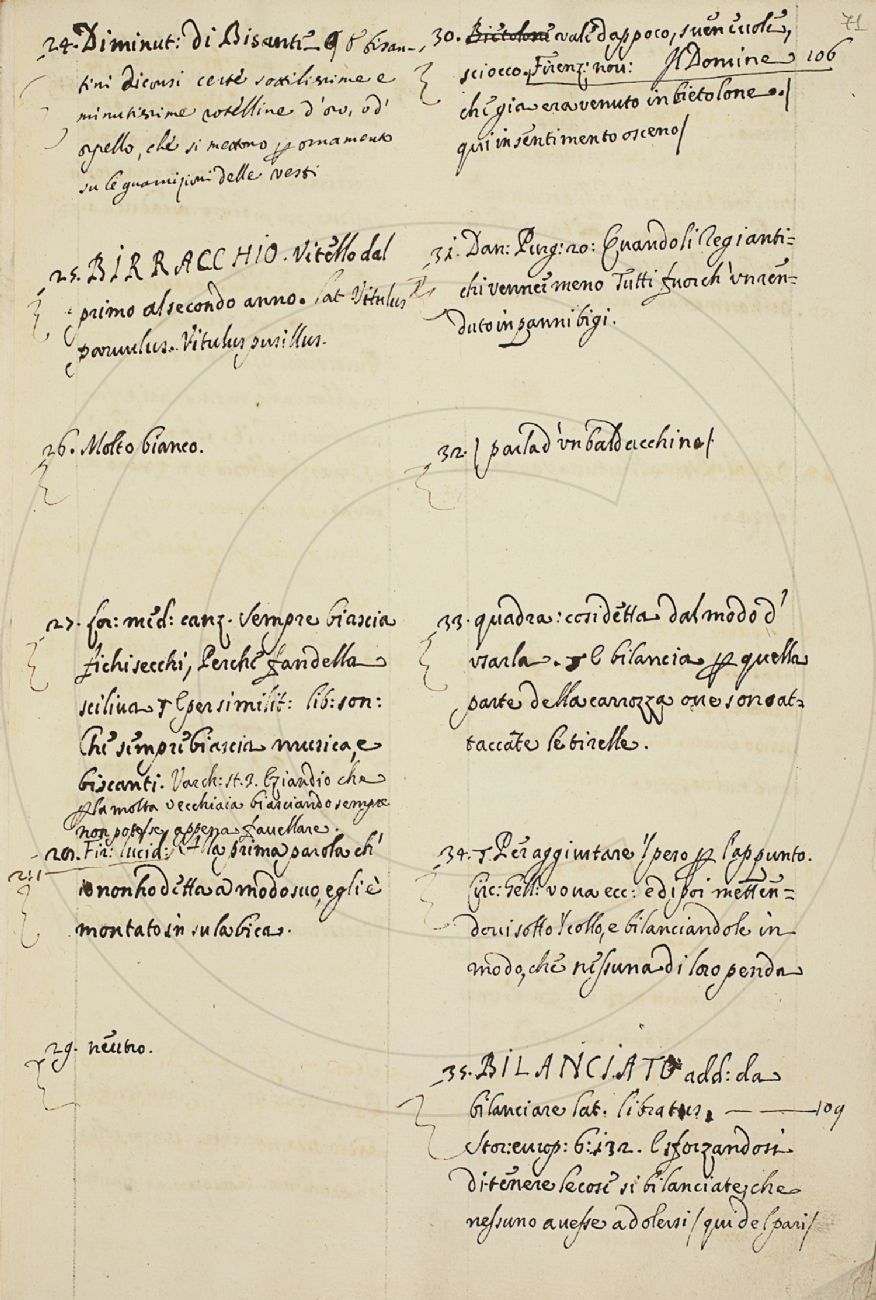 71
24. Diminut: di Bisante q È bisan-
tini diconsi certe sottilissime e
minutissime rotelline d'oro, o d'
orpello, che si mettono p ornamento
su le guarnizioni delle vesti
25. BIRRACCHIO. Vitello dal
primo al secondo anno. lat Vitulus
paruulus. Vitulus pusillus.
26. Molto bianco.
27. lor: med: canz. Sempre biascia
fichi secchi, Perche fan della
sciliua E per similit: lib: son:
Che sempre biascia musica, e
biscanti. Varch: st. 9. Eziandio che
p la molta vecchiaia biasciando sempre
non potesse appena fauellare.
28. Fir: lucid: Alla prima parola ch'
211
io non ho detta a modo suo, egli è
montato in su la bica.
29. neutro.
30. Bietolone vale dappoco, sueneuole,
sciocco. Firenz: nou: Il Domine 106
che gia era venuto in bietolone ./
qui in sentimento osceno/
31. Dan: Purg: 20: Quando li Regi anti=
chi venner meno Tutti fuorch' vn ren=
duto in panni bigi.
32. / parla d'vn baldacchino/
33. quadra: cosi detta dal modo d'
vsarla. E bilancia p quella
parte della carrozza oue sono at=
taccate le tirelle.
34. Per aggiustare 'l peso p l'appunto.
Circ: Gell: vova ecc: e di poi metten=
doui sotto 'l collo, e bilanciandole in
modo, che nessuna di loro penda
35. BILANCIATO add: da
bilanciare lat. libratus. 109
Stor: europ: 6: 132. E sforzandosi
di tenere le cose si bilanciate, che
nessuno auesse a dolersi / qui del pari/